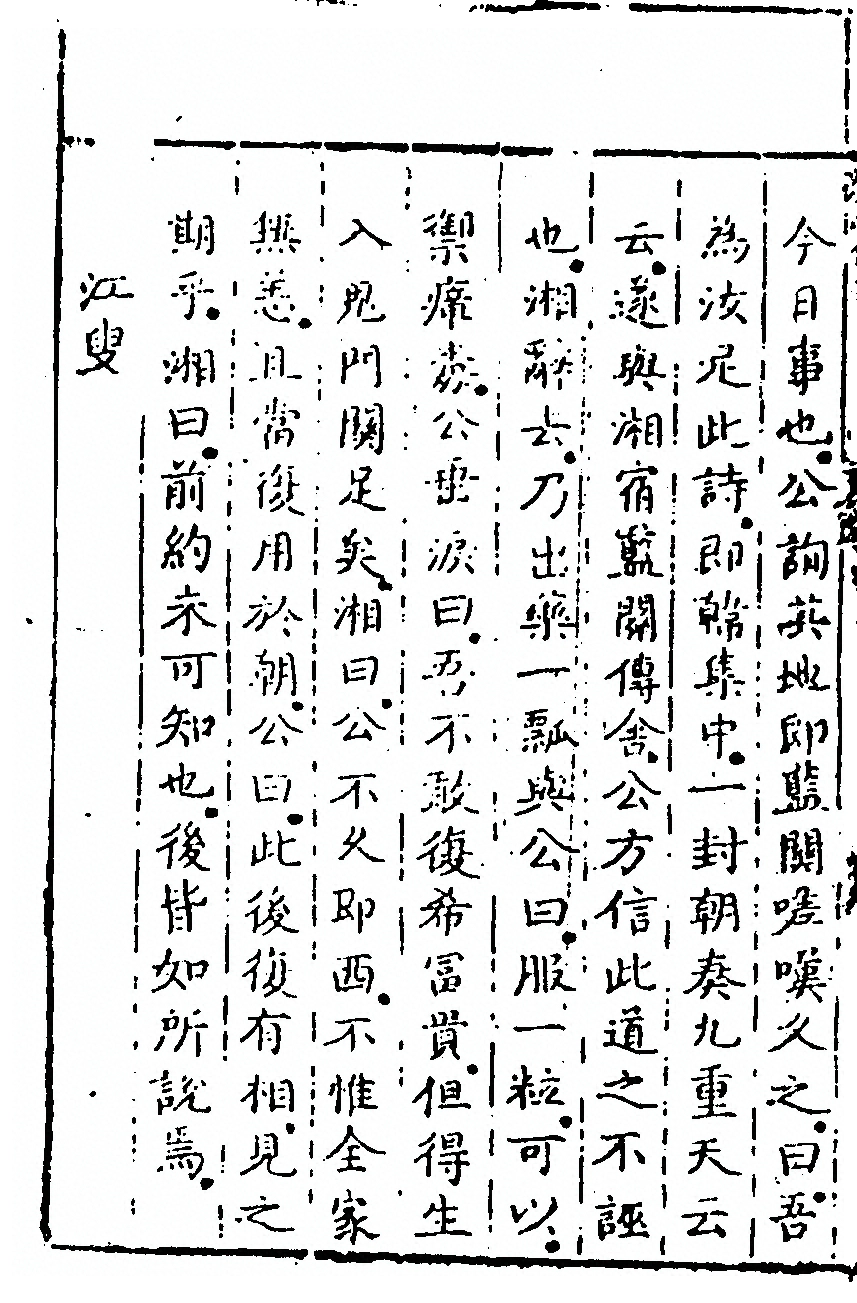 今日事也公詢其地即藍關嗟嘆久之曰吾
為汝足此詩即韓集中一封朝奏九重天云
云遂與湘宿藍關傳舍公方信此道之不誣
也湘辭去乃出藥一瓢與公曰服一粒可以
禦瘴毒公垂淚曰吾不敢復希冨貴但得生
入鬼門關足矣湘曰公不久即西不惟全家
無恙且當復用於朝公曰此後復有相見之
期乎湘曰前約未可知也後皆如所說焉
江叟